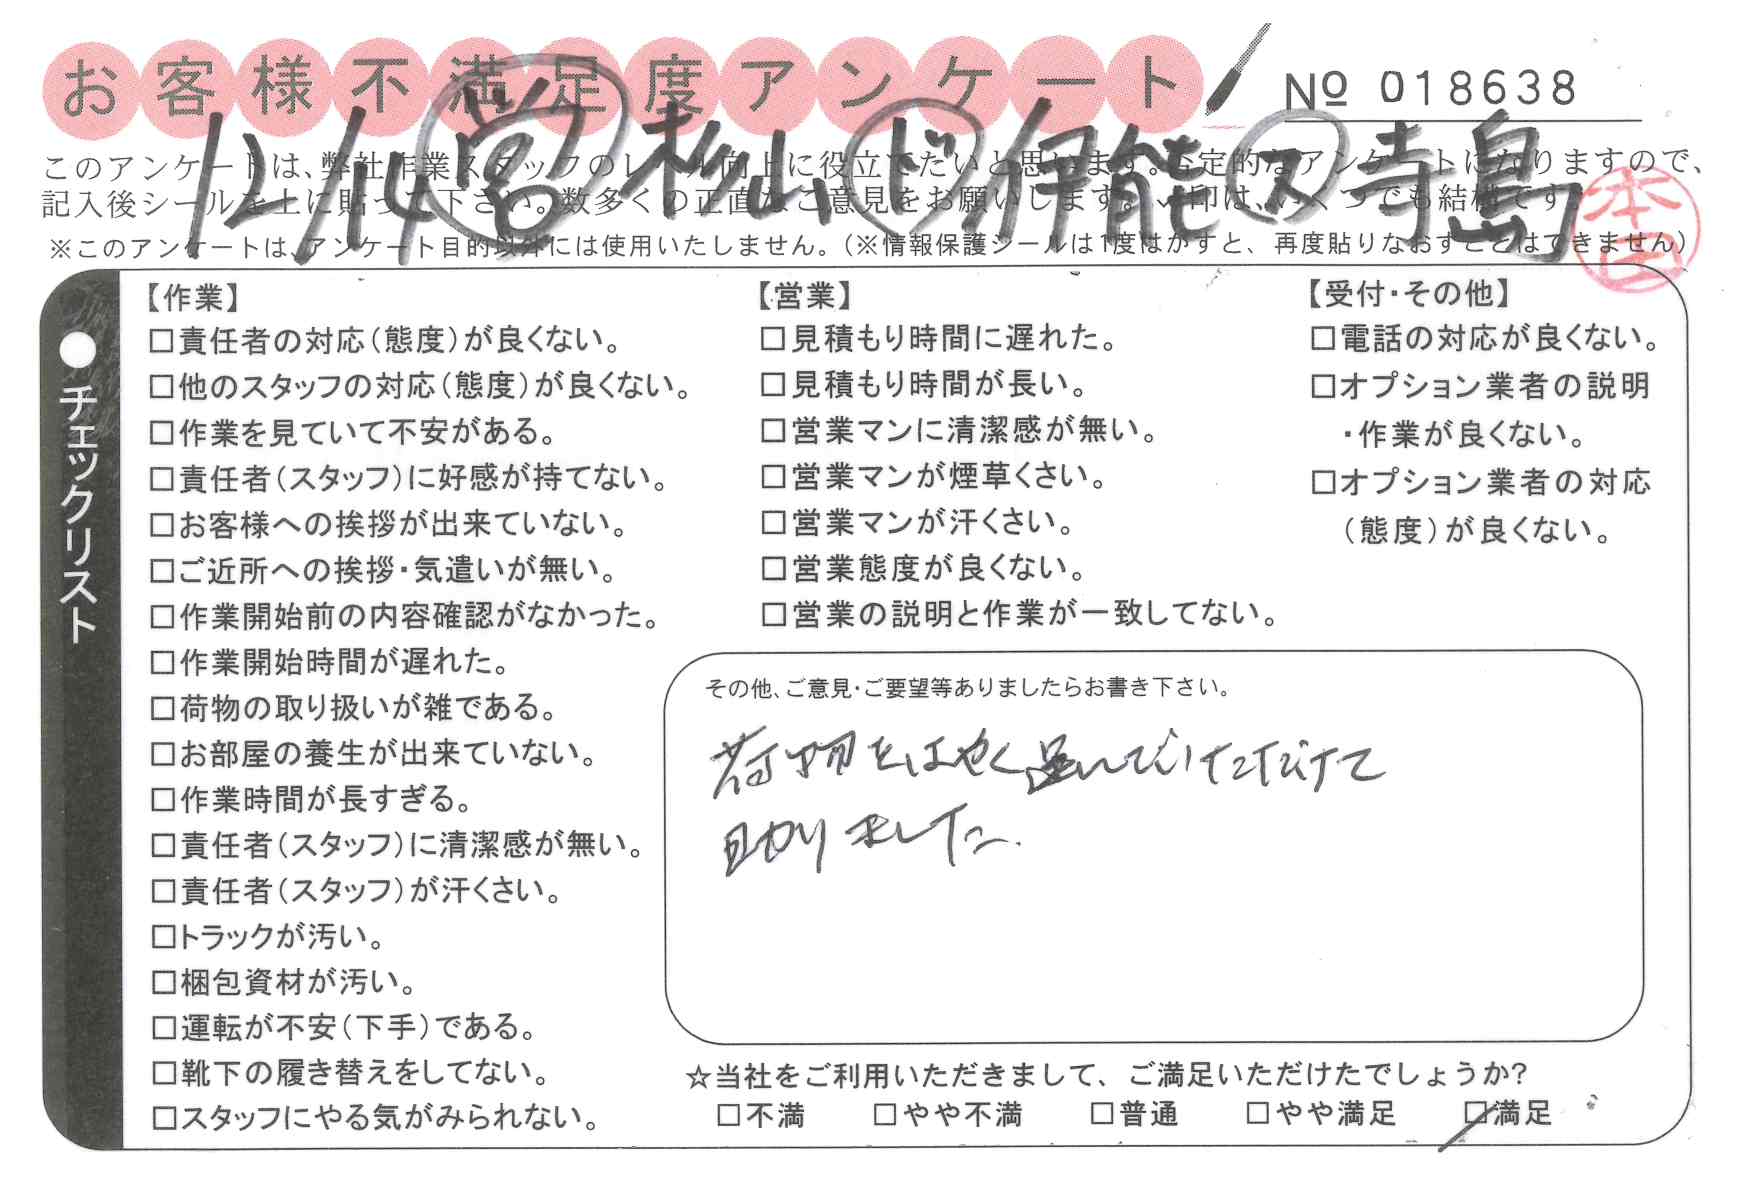 お客様不満足度アンケート
№ 018638
12/14 営 杉山 ド 伊能 ス 寺島
このアンケートは、弊社作業スタッフのレベル向上に役立てたいと思います。否定的なアンケートになりますので、
記入後シールを上に貼って下さい。数多くの正直なご意見をお願いします。✓印は、いくつでも結構です。
本田
※このアンケートは、アンケート目的以外には使用いたしません。(※情報保護シールは1度はがすと、再度貼りなおすことはできません)
●チェックリスト
【作業】
□責任者の対応(態度)が良くない。
□他のスタッフの対応(態度)が良くない。
□作業を見ていて不安がある。
□責任者(スタッフ)に好感が持てない。
□お客様への挨拶が出来ていない。
□ご近所への挨拶・気遣いが無い。
□作業開始前の内容確認がなかった。
□作業開始時間が遅れた。
□荷物の取り扱いが雑である。
□お部屋の養生が出来ていない。
□作業時間が長すぎる。
□責任者(スタッフ)に清潔感が無い。
□責任者(スタッフ)が汗くさい。
□トラックが汚い。
□梱包資材が汚い。
□運転が不安(下手)である。
□靴下の履き替えをしてない。
□スタッフにやる気がみられない。
【営業】
□見積もり時間に遅れた。
□見積もり時間が長い。
□営業マンに清潔感が無い。
□営業マンが煙草くさい。
□営業マンが汗くさい。
□営業態度が良くない。
□営業の説明と作業が一致してない。
【受付・その他】
□電話の対応が良くない。
□オプション業者の説明
・作業が良くない。
□オプション業者の対応
(態度)が良くない。
その他、ご意見・ご要望等ありましたらお書き下さい。
荷物をはやく運んでいただけて
助かりました。
☆当社をご利用いただきまして、ご満足いただけたでしょうか?
□不満 □やや不満 □普通 □やや満足 ☑満足